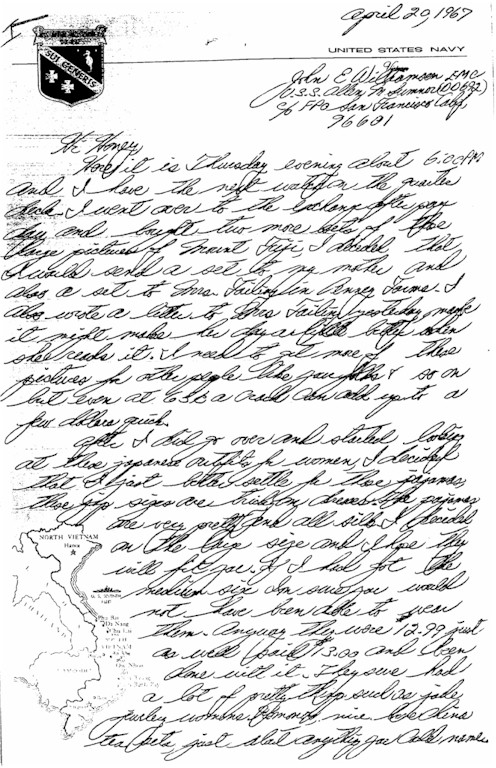 I
April 20, 1967
SUI GENERIS
UNITED STATES NAVY
John E Williamson EMC
U.S.S. Allen M Sumner (DD692)
c/o FPO San Francisco Calif
96601
Hi Honey,
Here it is Thursday evening about 6:00 PM
and I have the next watch on the quarter
deck. I went over to the exchange after
and bought two more sets of those
large pictures of Mount Fuji, I decided that
I would send a set to my mother and
also a set to Mrs. Failing in Penney Farms. I
also wrote a letter to Mrs Failing yesterday maybe
it might make her day a little better when
she reads it. I need to get more of these
pictures for other people like your folks & so on
but even at a crack can add up to a
few dollars quick.
After I did go over and started looking
at those japanese outfits for women, I decided
that I just better settle for those pajamas,
those jap sizes are dresses. The pajamas
are very pretty and all silk. I decided
on the large size and I hope they
will fit you. If I had got the
medium size Im sure you would
not have been able to wear
them. Anyway they were $12.99 just
as well said $13.00 and been
done with it. They sure had
a lot of pretty things such as jade
jewlery womens nice china
tea sets, just about anything you could name
NORTH VIETNAM
Hanoi
Phu Bai
Da Nang
Chu Lai
VIETNAM